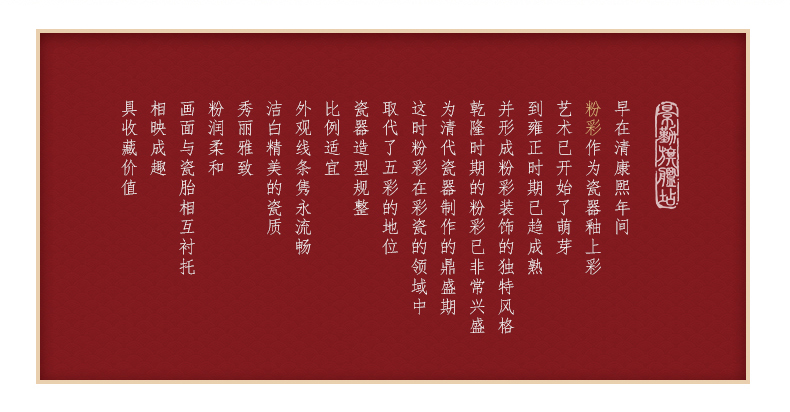 景勤旗舰站
早在清康熙年间
粉彩作为瓷器釉上彩
艺术已开始了萌芽
到雍正时期已趋成熟
并形成粉彩装饰的独特风格
乾隆时期的粉彩已非常兴盛
为清代瓷器制作的鼎盛期
这时粉彩在彩瓷的领域中
取代了五彩的地位
瓷器造型规整
比例适宜
外观线条隽永流畅
洁白精美的瓷质
秀丽雅致
粉润柔和
画面与瓷胎相互衬托
相映成趣
具收藏价值